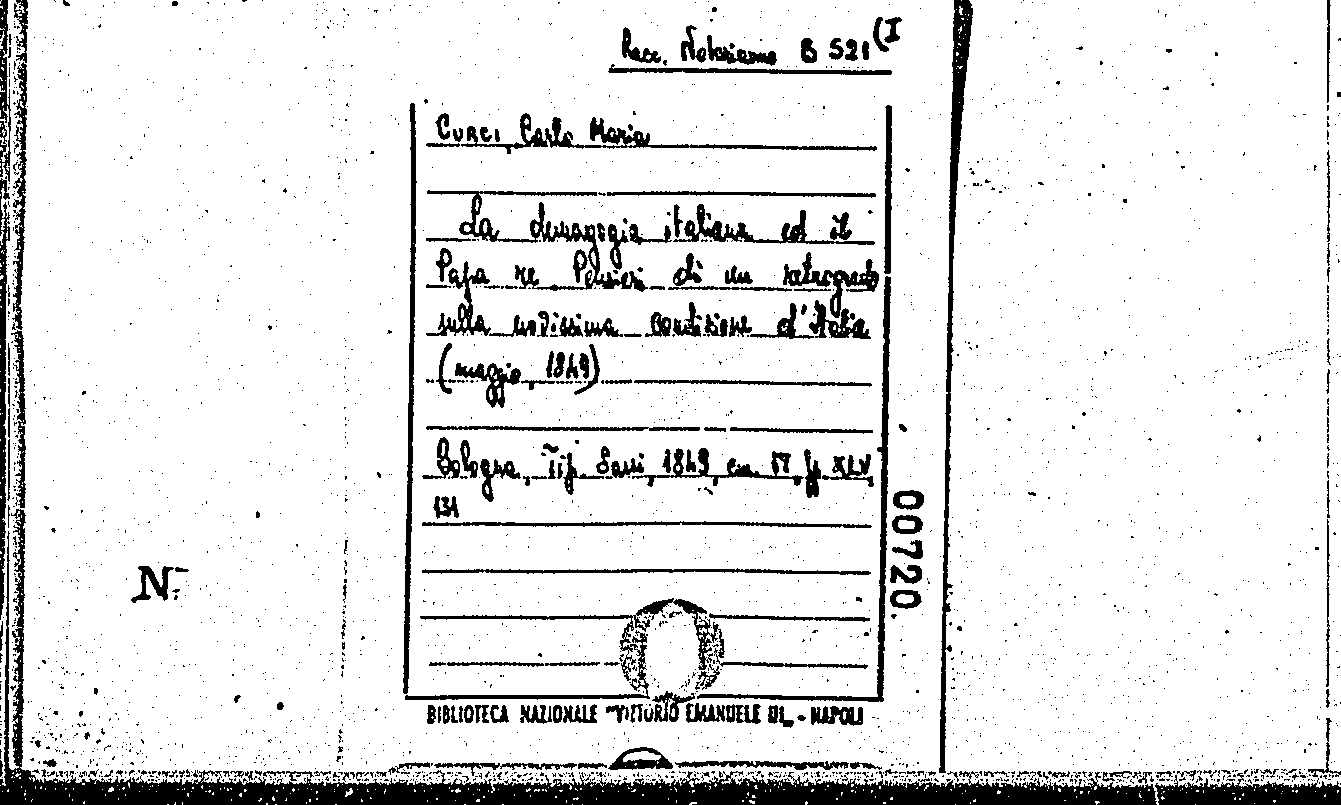 Racc. Nolariamo B 521 (I
CURCI, Carlo Maria
La demagogia italiana ed il
Papa re. Pensieri di un retrogrado
sulla novissima condizione d'Italia
(maggio, 1849)
Bologna, Tip. Sassi, 1849, cm. 17, pp. XLV,
131
00720
N.
BIBLIOTECA NAZIONALE "VITTORIO EMANUELE III„ - NAPOLI